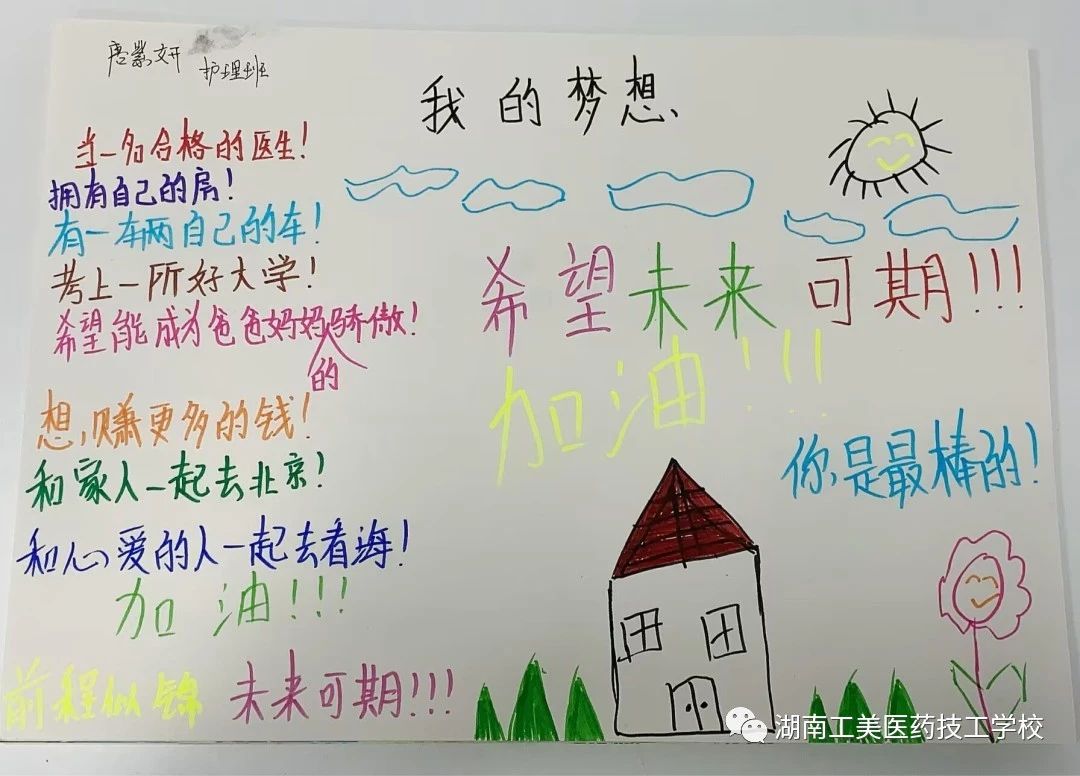 唐紫妍
护理班
我的梦想
当一名合格的医生!
拥有自己的房!
有一车两自己的车!
考上一所好大学!
希望能成为爸爸妈妈骄傲!
的
想赚更多的钱!
和家人一起去北京!
和心爱的人一起去看海!
加油!!!
前程似锦 未来可期!!!
希望未来可期!!!
加油!!!
你是最棒的!
湖南工美医药技工学校